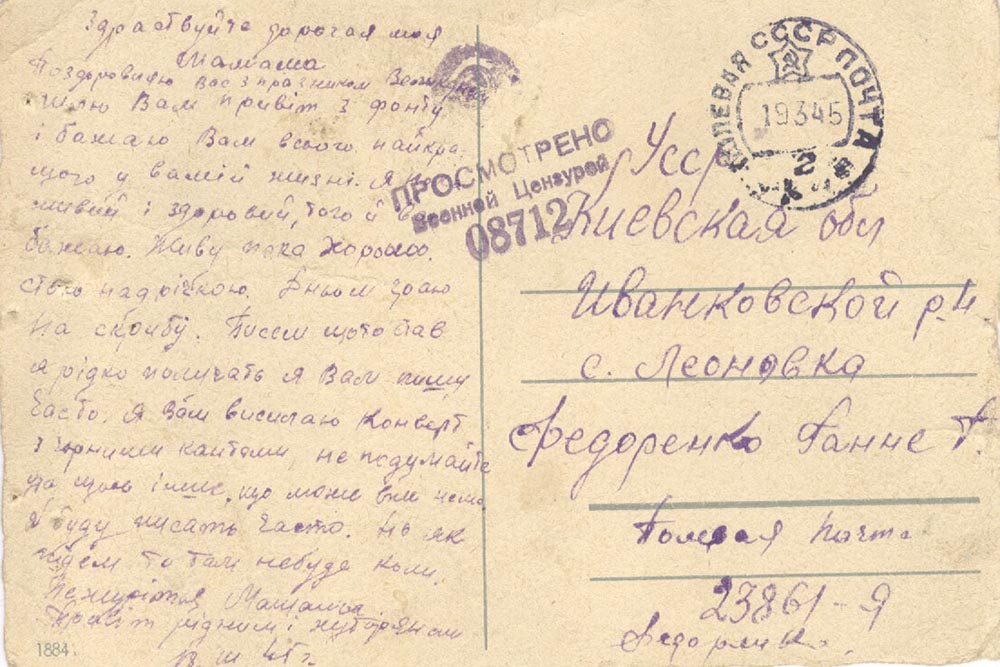 Здраствуйте дорогая моя
Мамаша
Поздоровляю Вас з празником
шлю Вам привіт з фронту
і бажаю Вам всього найкра-
щого у вашій жизні. Я
живий і здоровий, того й
бажаю. Живу пока хорошо.
Дньом граю
На скрибці. Писем щото став
я рідко получать я Вам пишу
часто. Я Вам висилаю конверт
з чорними кантами, не подумайте
що може вже нема
Я буду писать часто. Но як
підем то там небуде коли.
Мамаша
Привіт рідним і хуторянам
18 III 45 г.
1884
ПРОСМОТРЕНО
Военной Цензурой
08712
ПОЛЕВАЯ ПОЧТА СССР
19345
2
Усср
Киевская обл
Иванковской р.н.
с. Леоновка
Федоренко Ганне Т.
Полевая почта
23861-Я
Федоренко